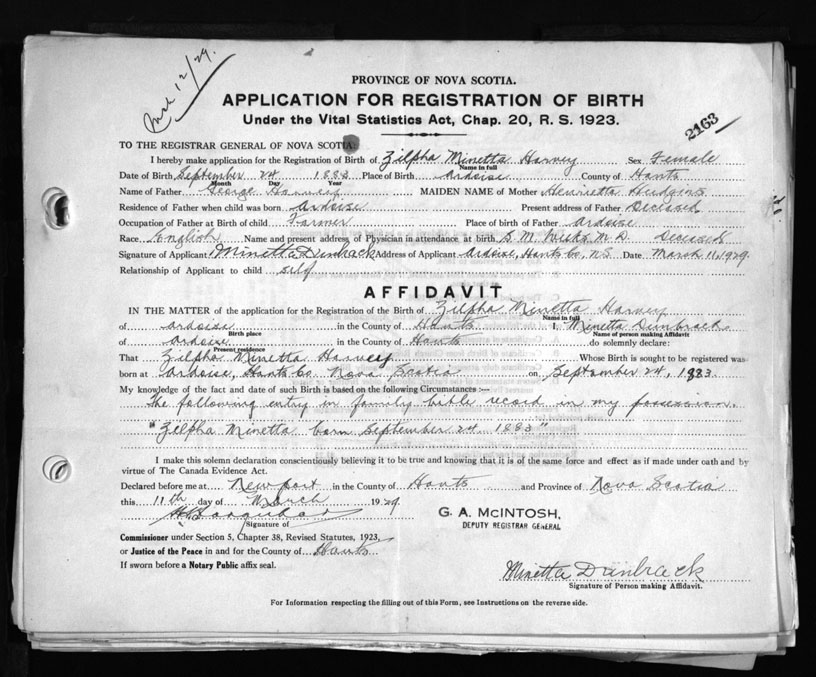 Mch 12/29.
PROVINCE OF NOVA SCOTIA.
APPLICATION FOR REGISTRATION OF BIRTH
Under the Vital Statistics Act, Chap. 20, R. S. 1923.
2163
TO THE REGISTRAR GENERAL OF NOVA SCOTIA:
I hereby make application for the Registration of Birth of Zilpha Minetta Harvey Sex Female
Name in full
Date of Birth September 24 1883 Place of Birth Ardoise County of Hants
Month Day Year
Name of Father George Harvey MAIDEN NAME of Mother Henrietta Hudgins
Residence of Father when child was born Ardoise Present address of Father Deceased
Occupation of Father at Birth of child Farmer Place of birth of Father Ardoise
Race English Name and present address of Physician in attendance at birth S. M. Weeks M D Deceased
Signature of Applicant Minetta Dunbrack Address of Applicant Ardoise, Hants Co, N.S. Date March 11, 1929
Relationship of Applicant to child self
AFFIDAVIT
IN THE MATTER of the application for the Registration of the Birth of Zilpha Minetta Harvey
Name in full
of Ardoise in the County of Hants I, Minetta Dunbrack
Birth place Name of person making Affidavit
of Ardoise in the County of Hants do solemnly declare:
Present residence
That Zilpha Minetta Harvey Whose Birth is sought to be registered was
born at Ardoise, Hants Co Nova Scotia on September 24, 1883.
My knowledge of the fact and date of such Birth is based on the following Circumstances :—
The following entry in family bible record in my possession.
"Zilpha Minetta born September 24 1883"
I make this solemn declaration conscientiously believing it to be true and knowing that it is of the same force and effect as if made under oath and by
virtue of The Canada Evidence Act.
Declared before me at Newport in the County of Hants and Province of Nova Scotia
this 11th day of March 1929
G. A. McINTOSH,
DEPUTY REGISTRAR GENERAL
Signature of
Commissioner under Section 5, Chapter 38, Revised Statutes, 1923,
or Justice of the Peace in and for the County of Hants
If sworn before a Notary Public affix seal.
Minetta Dunbrack
Signature of Person making Affidavit.
For Information respecting the filling out of this Form, see Instructions on the reverse side.